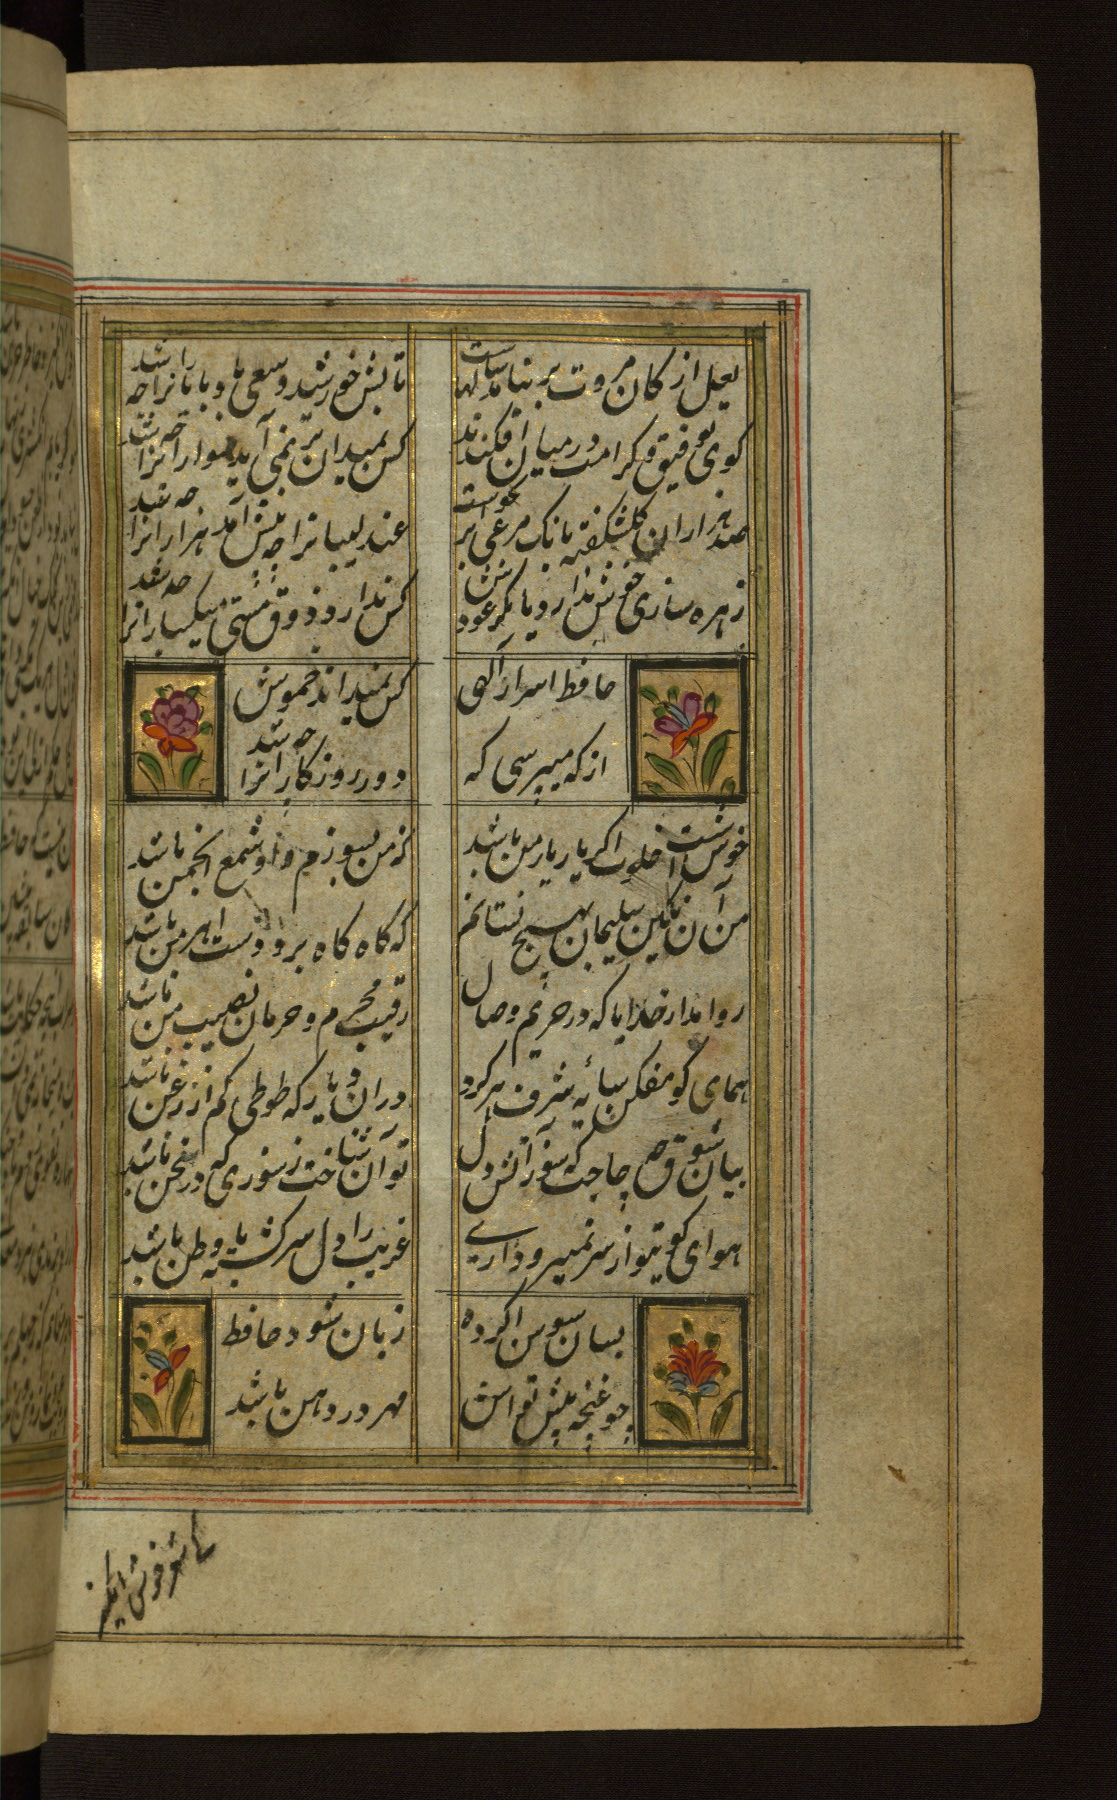 لعل از کان مروت بر نیامد سالهاست
تابش خورشید و سعی باد و بارانرا چه شد
کوی توفیق و کرامت در میان افکنده‌اند
کس بمیدان بر نمی آید سوارانرا چه شد
صد هزاران گل شکفته بانک مرغی بر نخواست
عندلیبانرا چه پیش آمد هزارانرا چه شد
زهره سازی خوش ندارد یا مگر عودش
کس ندارد ذوق مستی میکسارانرا چه شد
حافظ اسرار الهی
کس نمیداند خموش
از که میپرسی که
دور روزکارانرا چه شد
خوشست خلوت اکر یار یار من باشد
نه من بسوزم و او شمع انجمن باشد
من آن نکین سلیمان بهیچ نستانم
که کاه کاه برو دست اهرمن باشد
روا مدار خدایا که در حریم وصال
رقیب محرم و حرمان نصیب من باشد
همای کو مفکن سایه شرف هرکز
در ان دیار که طوطی کم از زغن باشد
بیان شوق چه حاجت که سوز آتش دل
توان شناخت ز سوزی که در سخن باشد
هوای کوی تو از سر نمیرود اری
غریب را دل سرکشته با وطن باشد
بسان سوسن اکر ده
زبان شود حافظ
چو غنچه پیش تواش
مهر در دهن باشد